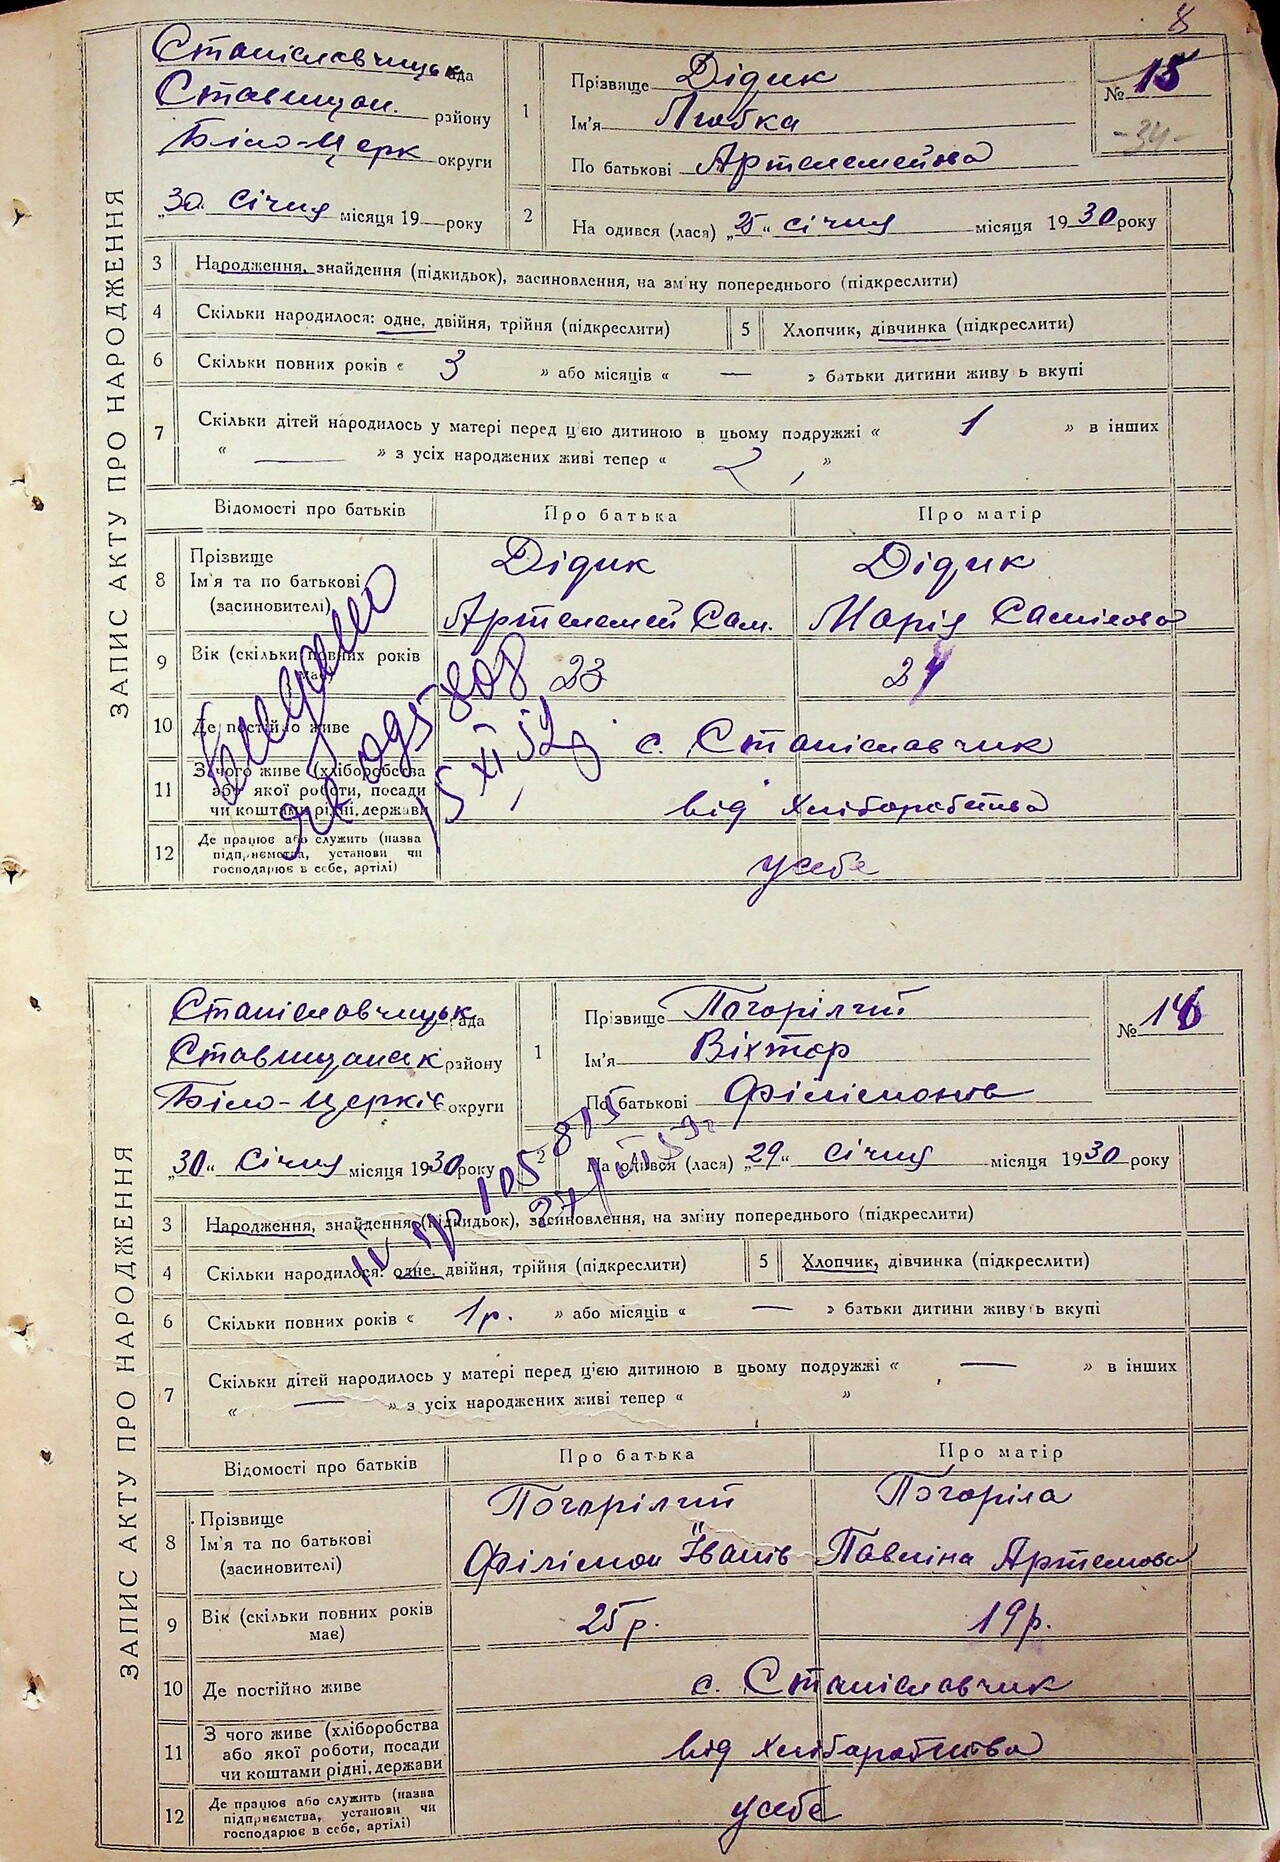 8
Станіславчицька рада
Ставищан. району
Біло-Церк округи
"30" Січня місяця 19 року
1 Прізвище Дідик
Ім'я Любка
По батькові Артелемейова
№ 15
-34-
2 На одився (лася) „25“ січня місяця 1930 року
ЗАПИС АКТУ ПРО НАРОДЖЕННЯ
3 Народження, знайдення (підкидьок), засиновлення, на зміну попереднього (підкреслити)
4 Скільки народилося: одне, двійня, трійня (підкреслити) 5 Хлопчик, дівчинка (підкреслити)
6 Скільки повних років « 3 » або місяців « — » батьки дитини живу ь вкупі
7 Скільки дітей народилось у матері перед цією дитиною в цьому подружжі « 1 » в інших
« — » з усіх народжених живі тепер « 2 »
Відомості про батьків Про батька Про матір
8 Прізвище Дідик Дідик
Ім'я та по батькові
(засиновителі) Артелемей Сам. Марія Саміловa
9 Вік (скільки повних років має) 23 24
10 Де постійно живе с. Станіславчик
11 З чого живе (хліборобства
або якої роботи, посади
чи коштами рідні, держави від Хліборобства
12 Де працює або служить (назва
підприємства, установи чи
господарює в себе, артілі) усебе
15 XI 52
Станіславчицьк рада
Ставищанськ району
Біло-Церків округи
„30“ Січня місяця 1930 року
1 Прізвище Погорілий
Ім'я Віхтор
По батькові Філімонів
№ 16
2 На одився (лася) „29“ січня місяця 1930 року
ЗАПИС АКТУ ПРО НАРОДЖЕННЯ
3 Народження, знайдення (підкидьок), засиновлення, на зміну попереднього (підкреслити)
4 Скільки народилося: одне, двійня, трійня (підкреслити) 5 Хлопчик, дівчинка (підкреслити)
6 Скільки повних років « 1р. » або місяців « — » батьки дитини живуть вкупі
7 Скільки дітей народилось у матері перед цією дитиною в цьому подружжі « — » в інших
« — » з усіх народжених живі тепер « »
Відомості про батьків Про батька Про матір
8 Прізвище Погорілий Погоріла
Ім'я та по батькові
(засиновителі) Філімон Іванів Павліна Артемова
9 Вік (скільки повних років
має) 25р. 19р.
10 Де постійно живе с. Станіславчик
11 З чого живе (хліборобства
або якої роботи, посади
чи коштами рідні, держави від Хліборобства
12 Де працює або служить (назва
підприємства, установи чи
господарює в себе, артілі) усебе